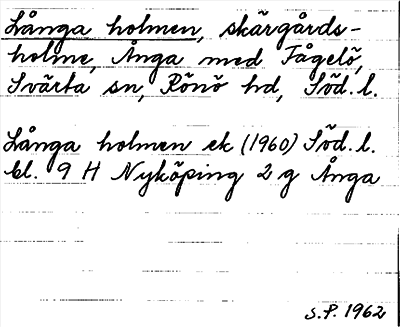 Långa holmen, skärgårds-
holme, Ånga med Fågelö,
Svärta sn, Rönö hd, Söd. l.
Långa holmen ek (1960) Söd. l.
bl. 9 H Nyköping 2 g Ånga
S.P. 1962